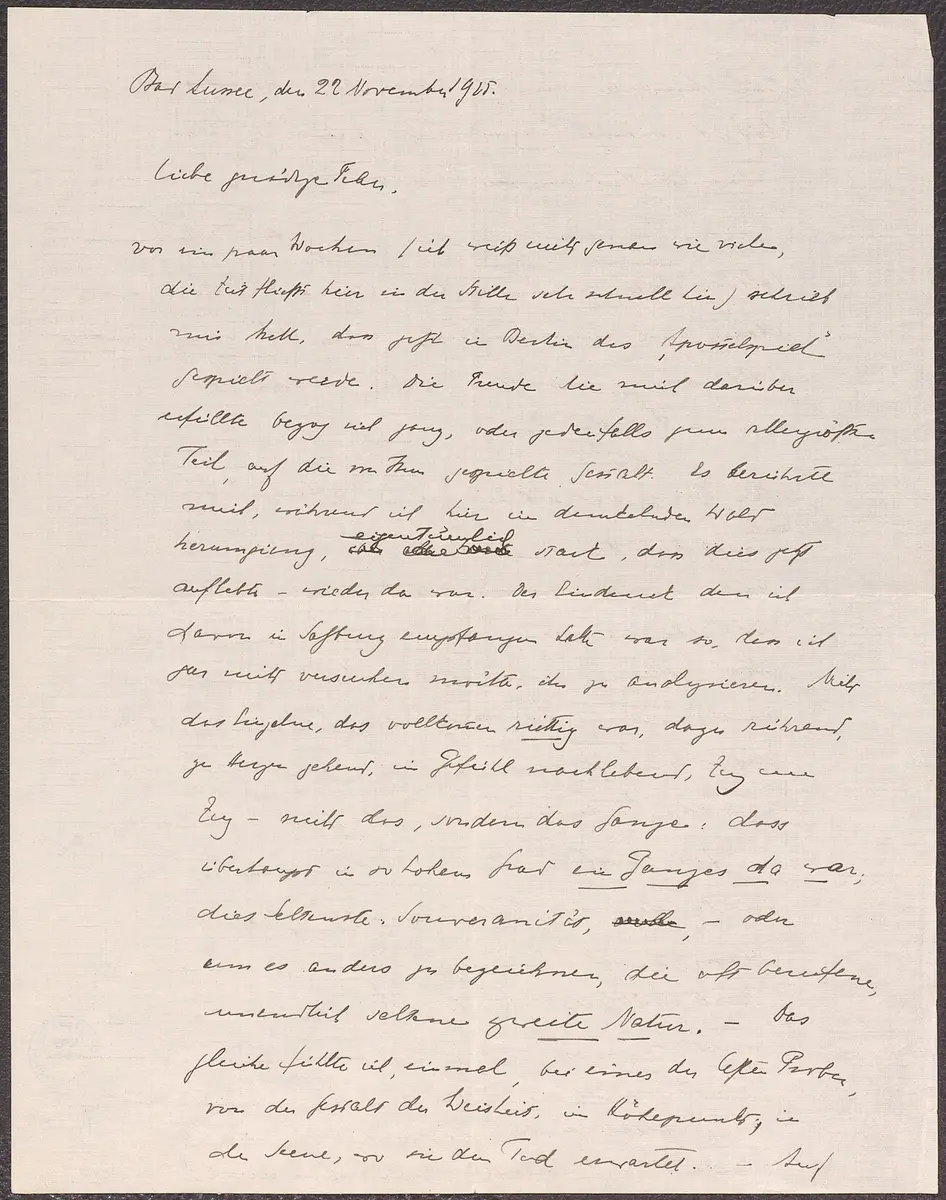 Bad Aussee, den 22 November 1925.
Liebe gnädige Frau,
vor ein paar Wochen (ich weiß nicht genau wie viele,
die Zeit fließt hier in der Stille sehr schnell hin) schrieb
mir, dass jetzt in Berlin das „Apostelspiel“
gespielt werde. Die Freude die mich darüber
erfüllte bezog sich ganz, oder jedenfalls zum allergrößten
Teil, auf die von Ihnen gespielte Gestalt. Es berührte
mich, während ich hier im dunkelnden Wald
herumgieng, eigentümlich stark, dass dies jetzt
auflebte – wieder da war. Der Eindruck den ich
davon in Salzburg empfangen hatte war so, dass ich
gar nicht versuchen möchte, ihn zu analysieren. Nicht
das Einzelne, das vollkommen richtig war, dazu rührend,
zu Herzen gehend, im Gefühl nachlebend, Zug um
Zug – nicht das, sondern das Ganze: dass
überhaupt in so hohem Grad ein Ganzes da war,
dies Seltenste: Souveränität, – oder
um es anders zu bezeichnen, die oft berufene,
unendlich seltene zweite Natur. – Das
gleiche fühlte ich, einmal, bei einer der letzten Proben,
von der Gestalt der Weisheit, im Höhepunkt, in
der Scene, wo sie den Tod erwartet. – Auf